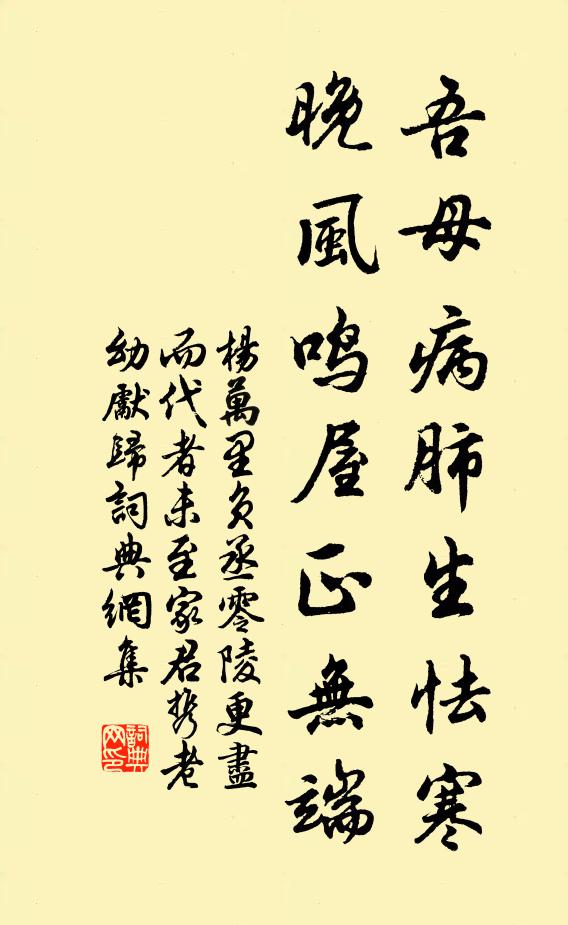 吾母病肺生怯寒
晚風鳴屋正無端
楊萬里負丞零陵更盡
而代者未至家君攜老
幼獻歸詞典網集
詞典網印